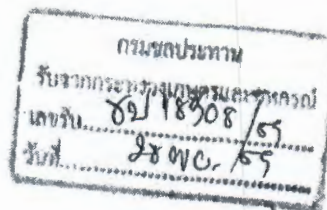 กรมชลประทาน
รับจากกระทรวงเกษตรและสหกรณ์
เลขรับ ชป 18508/59
วันที่ 28 พ.ย. /59